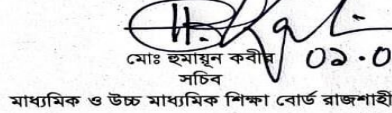 মোঃ হুমায়ূন কবীর ০৯.০
সচিব
মাধ্যমিক ও উচ্চ মাধ্যমিক শিক্ষা বোর্ড রাজশাহী